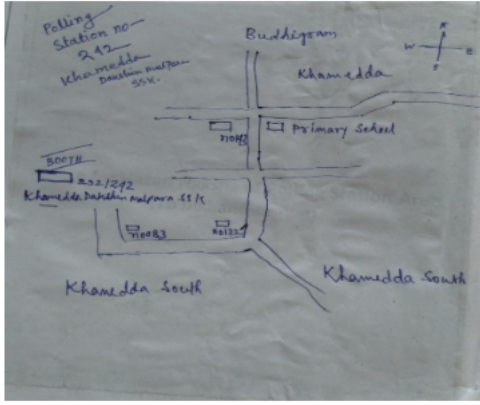 Polling
Station no-
242
Khamedda
Dakshin malpara
SSK.
Buddigram
Khamedda
N
W
E
S
Primary School
BOOTH
232/242
Khamedda Dakshin malpara SSK
no083
no122
Khamedda South
Khamedda South